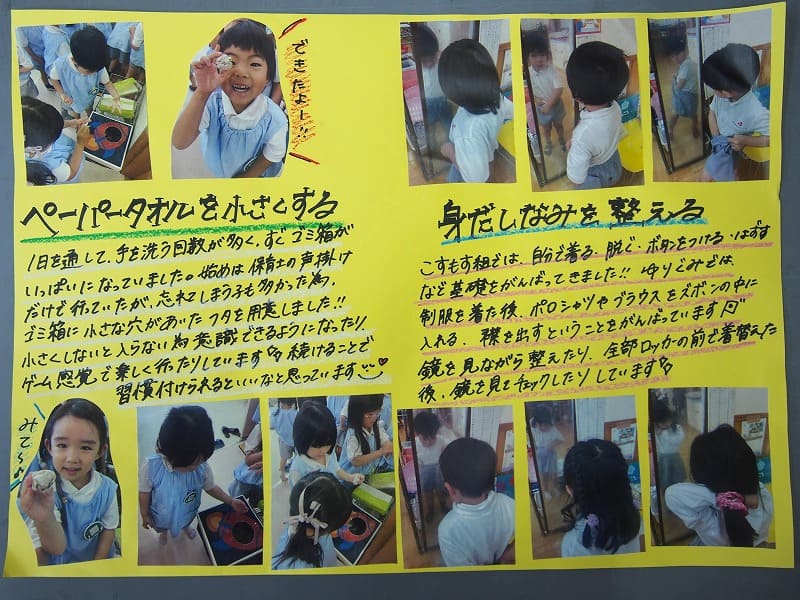 できたよー!!
ペーパータオルを小さくする
1日を通して、手を洗う回数が多く、すぐゴミ箱が
いっぱいになっていました。始めは保育士の声掛け
だけで行っていたが、忘れてしまう子も多かった為、
ゴミ箱に小さな穴があいたフタを用意しました!!
小さくしないと入らない為意識できるようになったり、
ゲーム感覚で楽しく行ったりしています 続けることで
習慣付けられるといいなと思っています
みて〜♪
身だしなみを整える
こすもす組では、自分で着る・脱ぐ・ボタンをつける・はずす
など基礎をがんばってきました!! ゆりぐみでは
制服を着た後、ポロシャツやブラウスをズボンの中に
入れる、襟を出すということをがんばっています
鏡を見ながら整えたり、全部ロッカーの前で着替えた
後、鏡を見てチェックしたりしています